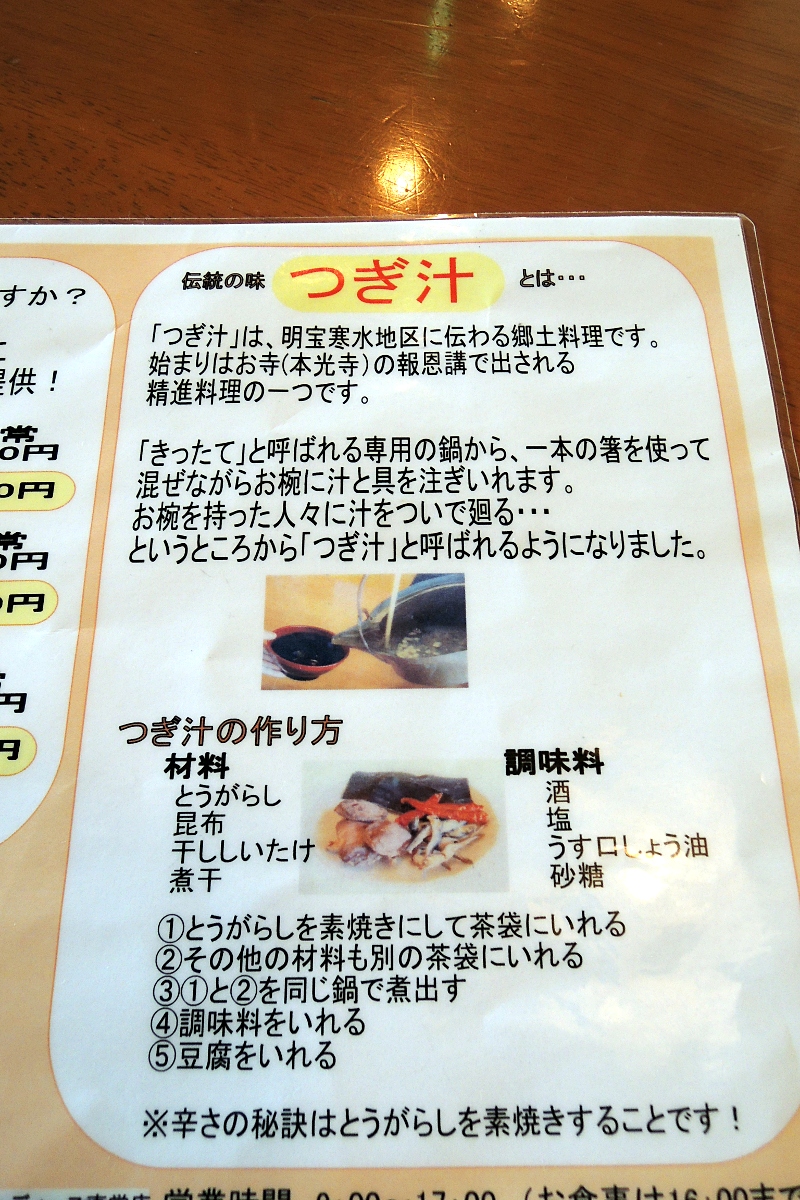 すか？
提供！
常
0円
0円
常
0円
円
円
円
伝統の味 つぎ汁 とは・・・
「つぎ汁」は、明宝寒水地区に伝わる郷土料理です。
始まりはお寺(本光寺)の報恩講で出される
精進料理の一つです。
「きったて」と呼ばれる専用の鍋から、一本の箸を使って
混ぜながらお椀に汁と具を注ぎいれます。
お椀を持った人々に汁をついで廻る・・・
というところから「つぎ汁」と呼ばれるようになりました。
つぎ汁の作り方
材料
とうがらし
昆布
干ししいたけ
煮干
調味料
酒
塩
うす口しょう油
砂糖
①とうがらしを素焼きにして茶袋にいれる
②その他の材料も別の茶袋にいれる
③①と②を同じ鍋で煮出す
④調味料をいれる
⑤豆腐をいれる
※辛さの秘訣はとうがらしを素焼きすることです！
営業時間 9:00～17:00 (お食事は16:00まで